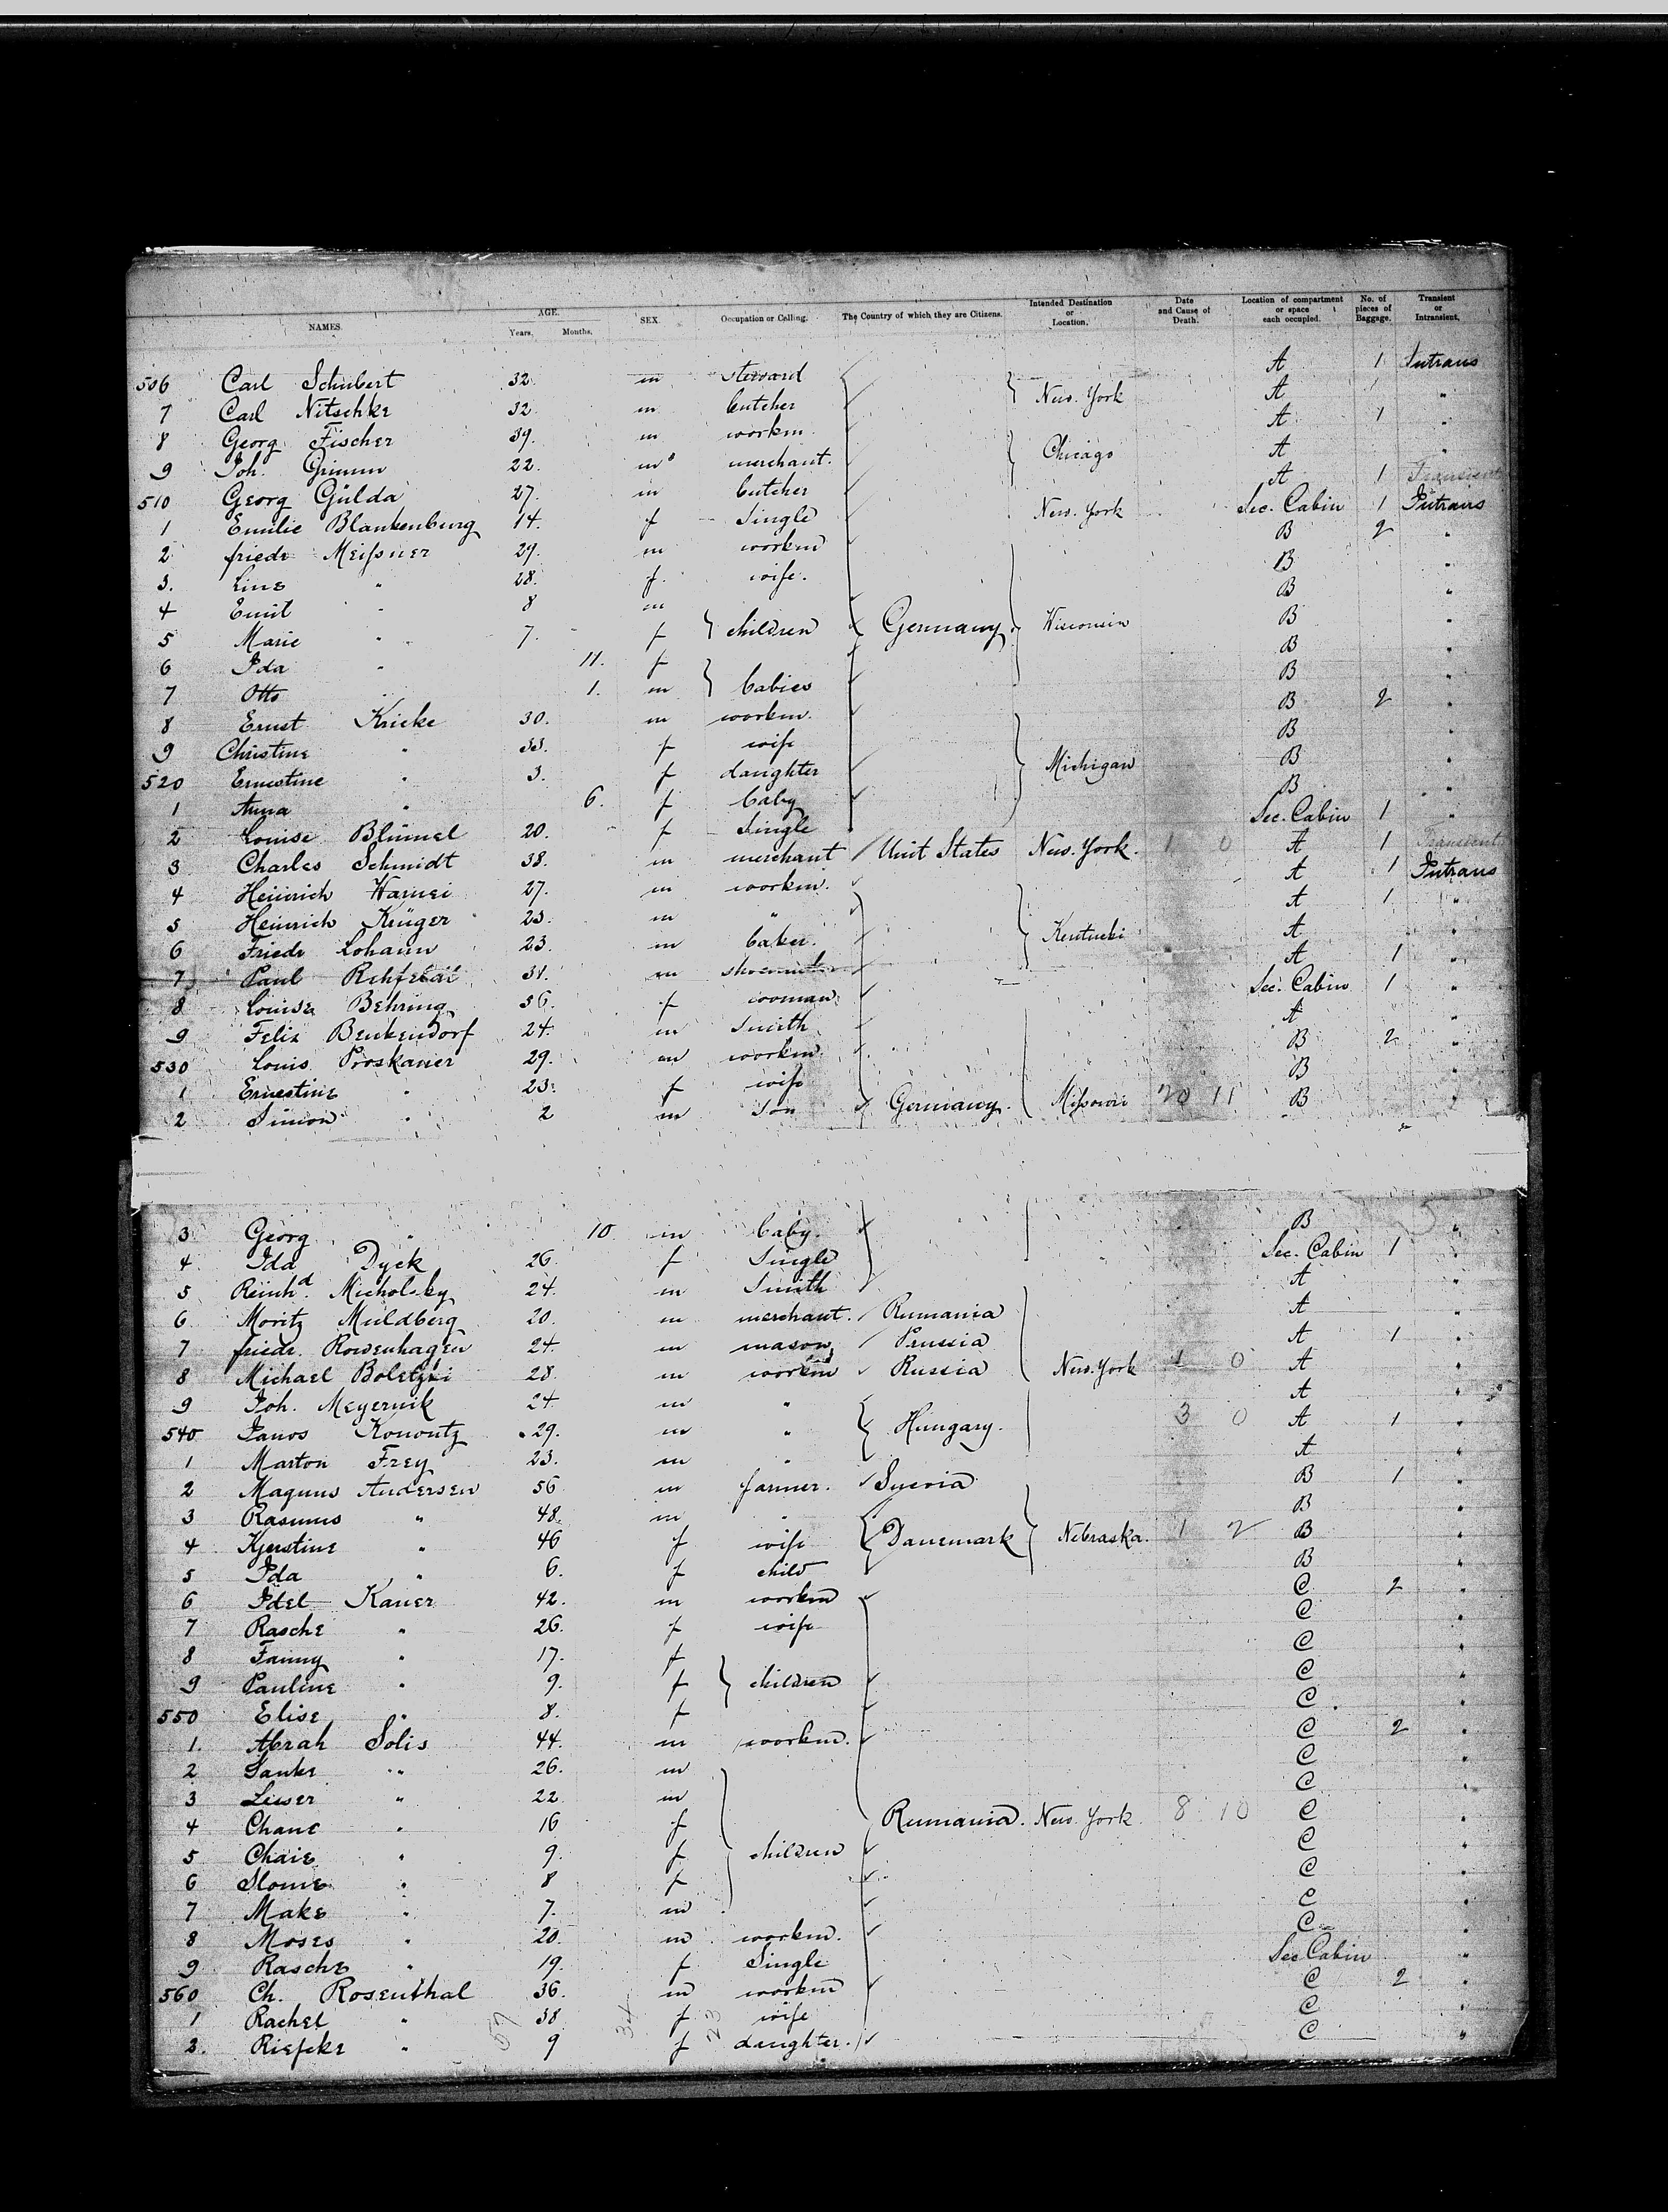 NAMES. AGE. Years. Months. SEX. Occupation or Calling. The Country of which they are Citizens. Intended Destination or Location. Date and Cause of Death. Location of compartment or space each occupied. No. of pieces of Baggage. Transient or Intransient.
506 Carl Schubert 32. m steward A 1 Intrans
7 Carl Nitschke 32. m butcher New. York A 1 "
8 Georg Fischer 39. m workm. A 1 "
9 Joh. Grimm 22. m merchant. Chicago A "
510 Georg Gülda 27. m butcher A 1 Transient
1 Emilie Blankenburg 14. f Single New. York Sec. Cabin 1 Intrans
2 friedr Meißner 29. m workm B 2 "
3. Line " 28. f. wife. B "
4 Emil " 8 m B "
5 Marie " 7. f children Germany. Wisconsin B "
6 Ida " 11. f B "
7 Otto " 1. m babies B "
8 Ernst Kricke 30. m workm. B 2 "
9 Christine " 33. f wife B "
520 Ernestine " 3. f daughter Michigan B "
1 Anna " 6. f baby B "
2 Louise Blümel 20. f Single Sec. Cabin 1 "
3 Charles Schmidt 38. m merchant Unit States New. York. 1 0 A 1 Transient
4 Heinrich 27. m workm. A 1 Intrans
5 Heinrich Krüger 23. m " A 1 "
6 Friedr Lohann 23. m baker. Kentucki A "
7 Paul Rehfeldt 31. m A 1 "
8 Louise Behring 56. f wooman Sec. Cabin 1 "
9 Felix Benkendorf 24. m Smith A "
530 Louis Proskauer 29. m workm. B 2 "
1 Ernestine " 23. f wife B "
2 Simon " 2 m Son Germany. Mißouri 20 11 B "
3 Georg " 10 m baby. B "
4 Ida Dyck 26. f Single Sec. Cabin 1 "
5 Reinhd. Micholsky 24. m Smith A "
6 Moritz Muldberg 20. m merchant. Rumania A "
7 friedr. Rowenhagen 24. m mason Prussia A 1 "
8 Michael Boletzki 28. m workm Russia New. York 4 0 A "
9 Joh. Meyernik 24 m " A "
540 Janos Konoutz 29. m " Hungary. 3 0 A 1 "
1 Marton Frey 23. m " A "
2 Magnus Andersen 56 m farmer. B 1 "
3 Rasmus " 48. m " B "
4 Kjerstine " 46 f wife Danemark Nebraska. 1 2 B "
5 Ida " 6. f child B "
6 Idel Kaner 42. m workm C 2 "
7 Rasche " 26. f wife C "
8 Fanny " 17. f C "
9 Pauline " 9. f children C "
550 Elise " 8. f C "
1. Abrah Solis 44. m workm. C 2 "
2 Janke " 26. m C "
3 Leiser " 22 m C "
4 Chane " 16 f Rumania. New. York. 8 10 C "
5 Chaie " 9. f children C "
6 Slome " 8 f C "
7 Make " 7. m C "
8 Moses " 20. m workm. C "
9 Rasche " 19. f Single Sec Cabin "
560 Ch. Rosenthal 36. m workm C 2 "
1 Rachel " 38 f wife C "
2. Riefcke " 9 f daughter. C "
57 34 23